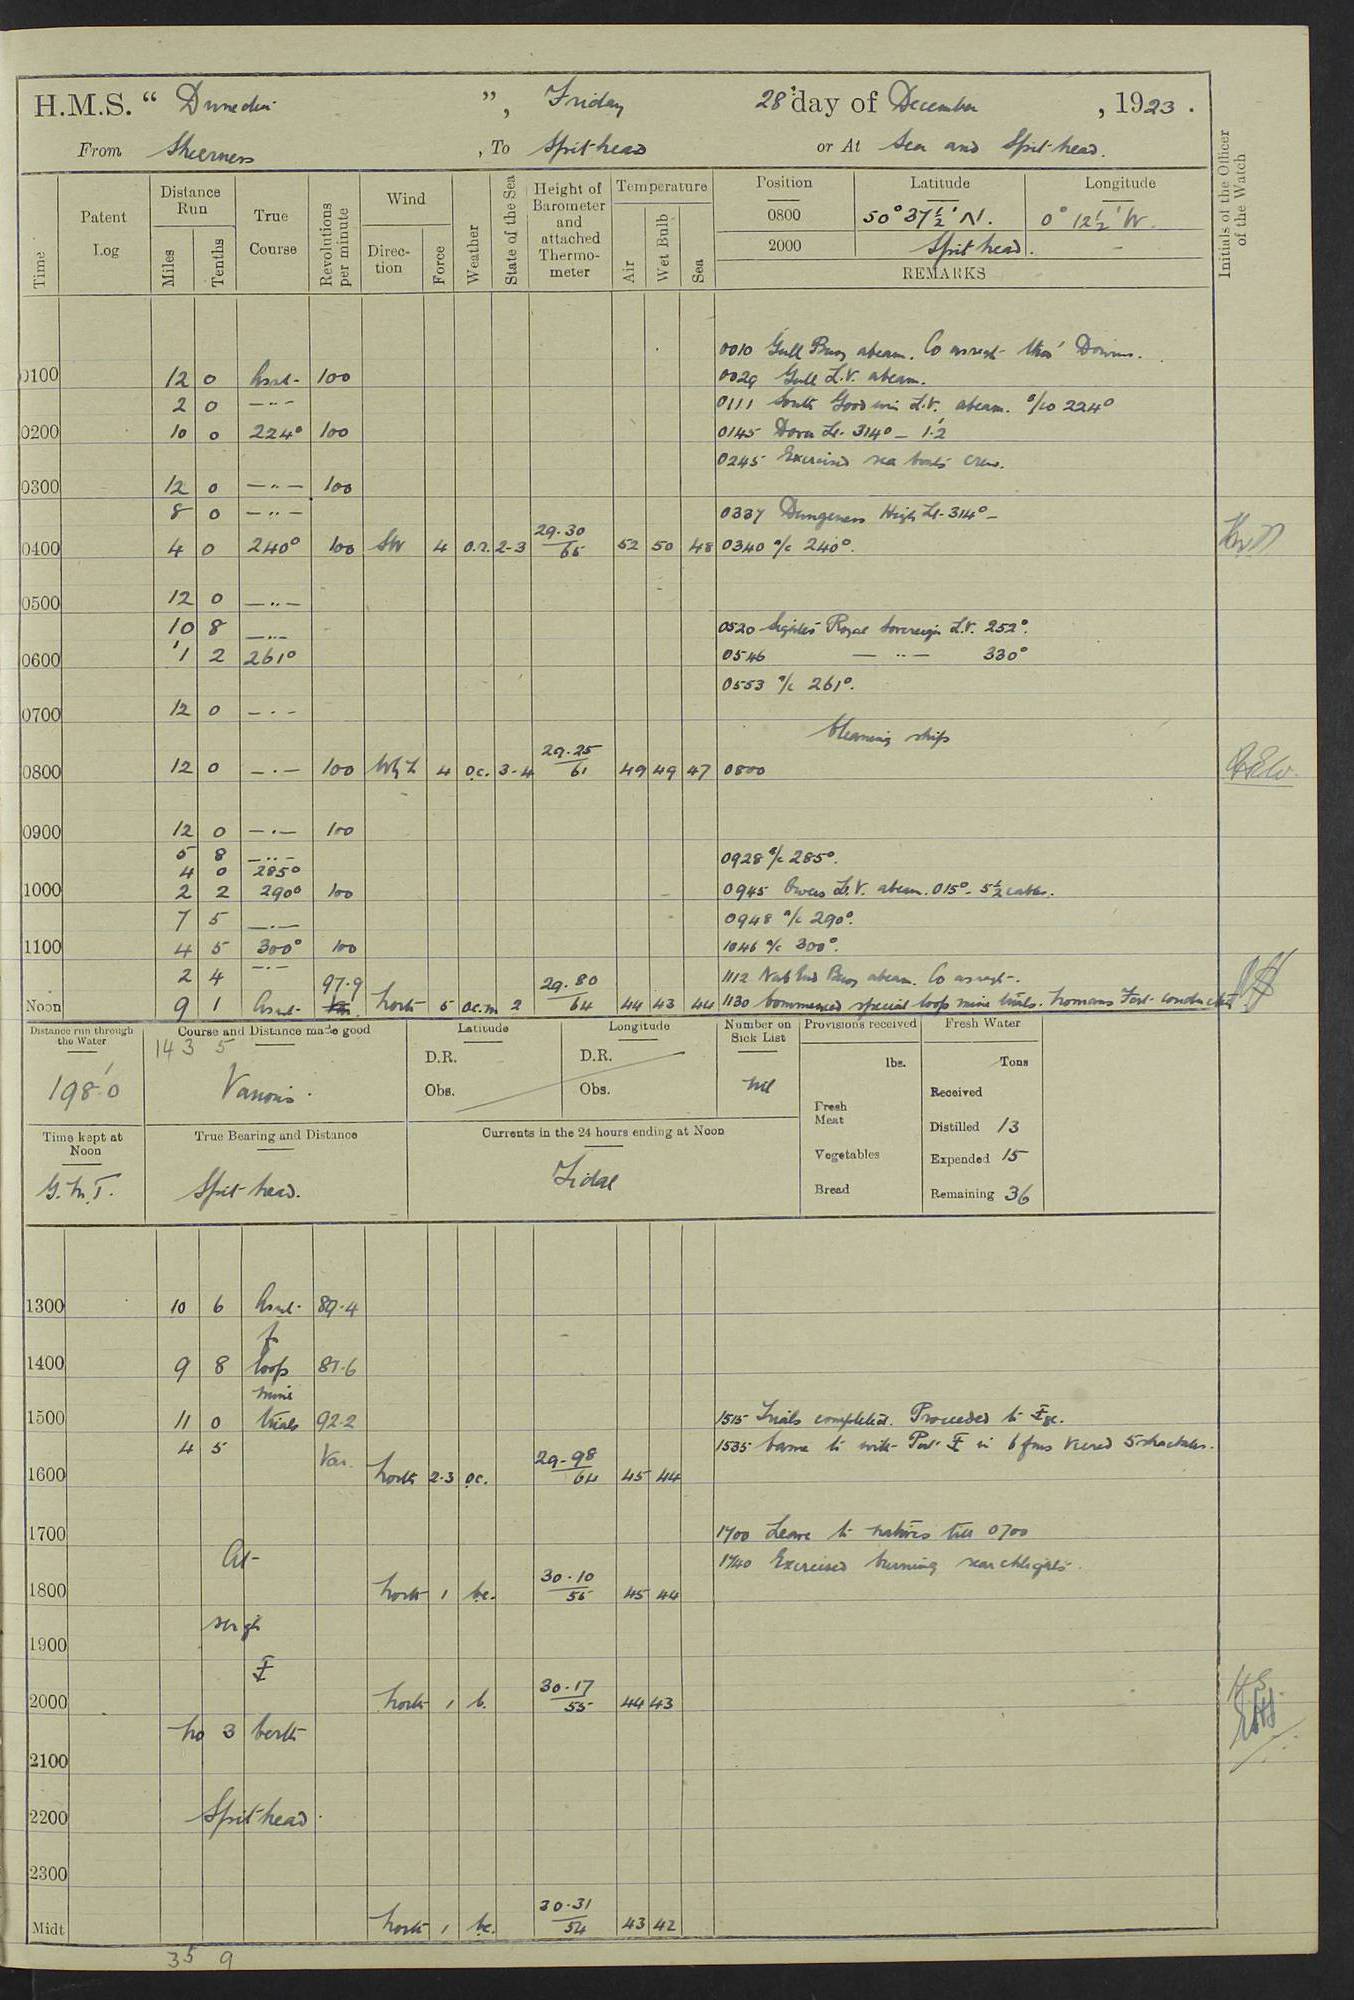 H.M.S. “ Dunedin ”, Friday 28 day of December, 1923.
From Sheerness, To Spithead or At Sea and Spithead.
Time
Patent Log
Distance Run
Miles
Tenths
True Course
Revolutions per minute
Wind
Direction
Force
Weather
State of the Sea
Height of Barometer and attached Thermometer
Temperature
Air
Wet Bulb
Sea
Position Latitude Longitude
0800 50° 37½' N. 0° 12½' W.
2000 Spithead. –
REMARKS
Initials of the Officer of the Watch
0010 Gull Buoy abeam. Co as reqt thro' Downs.
0100 12 0 As rqt- 100 0029 Gull L.V. abeam.
2 0 —"— 0111 South Goodwin L.V. abeam. a/co 224°
0200 10 0 224° 100 0145 Dover Lt. 314° – 1.2
0245 Exercised sea boats crew.
0300 12 0 —"— 100
8 0 —"— 0337 Dungeness High Lt. 314° –
0400 4 0 240° 100 SW 4 o.r. 2-3 29.30/65 52 50 48 0340 a/c 240°.
0500 12 0 —"—
10 8 —"— 0520 Sighted Royal Sovereign L.V. 252°.
0600 1 2 261° 0546 —"— 330°
0553 a/c 261°.
0700 12 0 —"—
Cleaning ship
0800 12 0 —"— 100 4 o.c. 3-4 29.25/61 49 49 47 0800
0900 12 0 —"— 100
5 8 —"— 0928 a/c 285°.
4 0 285°
1000 2 2 290° 100 0945 Owers L.V. abeam. 015° – 5½ cables.
7 5 —"— 0948 a/c 290°.
1100 4 5 300° 100 1046 a/c 300°.
2 4 —"— 97.9 1112 Nab End Buoy abeam. Co as reqt-.
Noon 9 1 As rqt- North 5 oc.m 2 29.80/64 44 43 44 1130 Commenced special loop mine trials. Homans Fort- conducted
Distance run through the Water
198.0
Course and Distance made good
143 5
Various.
Latitude
D.R.
Obs.
Longitude
D.R.
Obs.
Number on Sick List
Nil
Provisions received
lbs.
Fresh Meat
Vegetables
Bread
Fresh Water
Tons
Received
Distilled 13
Expended 15
Remaining 36
Time kept at Noon
G.M.T.
True Bearing and Distance
Spithead.
Currents in the 24 hours ending at Noon
Tidal
1300 10 6 As rqt- 89.4
for
1400 9 8 loop 87.6
mine
1500 11 0 trials 92.2 1515 Trials completed. Proceeded to ⚓ge.
4 5 Var. 1535 Came to with Port ⚓ in 6 fms veered 5 shackles.
1600 North 2.3 oc. 29.98/64 45 44
1700 1700 Leave to natives till 0700
At- 1740 Exercised burning searchlights.
1800 North 1 bc. 30.10/55 45 44
single
1900
⚓
2000 North 1 b. 30.17/55 44 43
No 3 berth
2100
2200 Spithead.
2300
Midt North 1 bc. 30.31/54 43 42
35 9